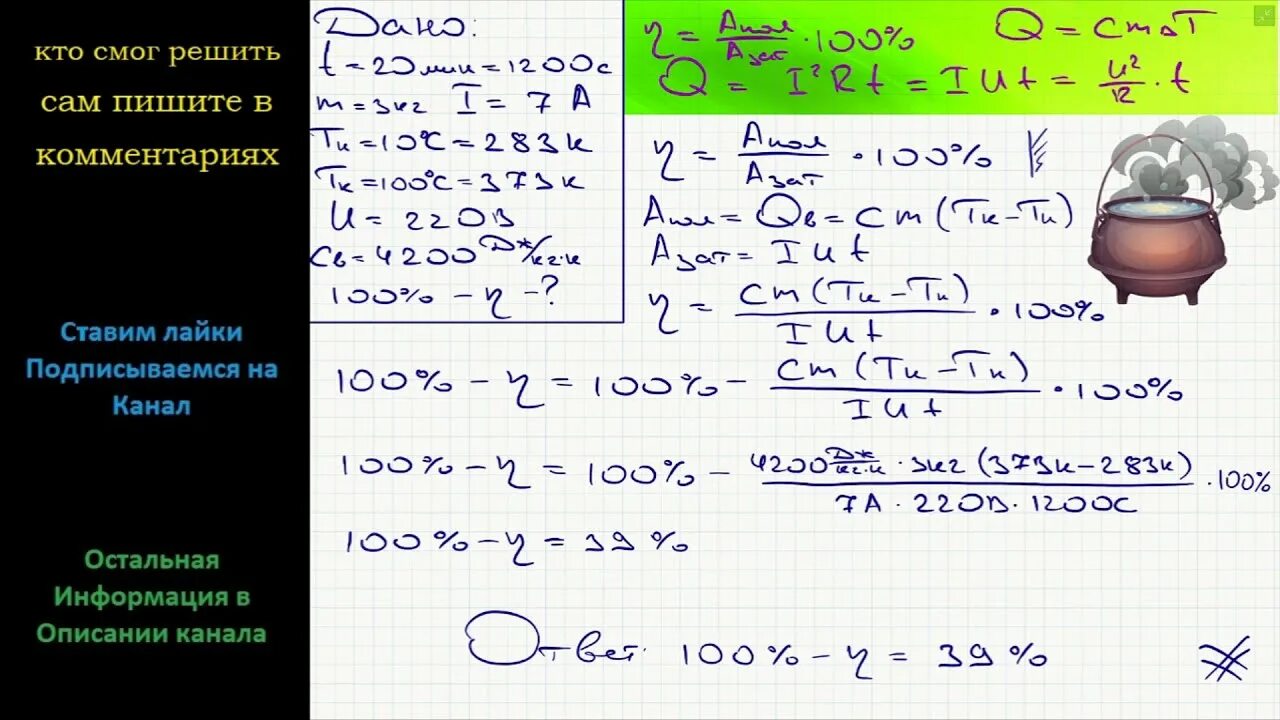 кто смог решить
сам пишите в
комментариях
Ставим лайки
Подписываемся на
Канал
Остальная
Информация в
Описании канала
Дано:
t = 20 мин = 1200 с
m = 3 кг I = 7 А
Tн = 10°C = 283 к
Tк = 100°C = 373 к
U = 220 В
Cв = 4200 Дж/кг·к
100% - η - ?
η = Aпол/Aзат · 100% Q = cmΔT
Q = I²Rt = IUt = U²/R · t
η = Aпол/Aзат · 100%
Aпол = Qв = cm(Tк - Tн)
Aзат = IUt
η = cm(Tк - Tн)/IUt · 100%
100% - η = 100% - cm(Tк - Tн)/IUt · 100%
100% - η = 100% - 4200 Дж/кг·к · 3кг (373к - 283к)/7А · 220В · 1200с · 100%
100% - η = 39%
Ответ: 100% - η = 39%